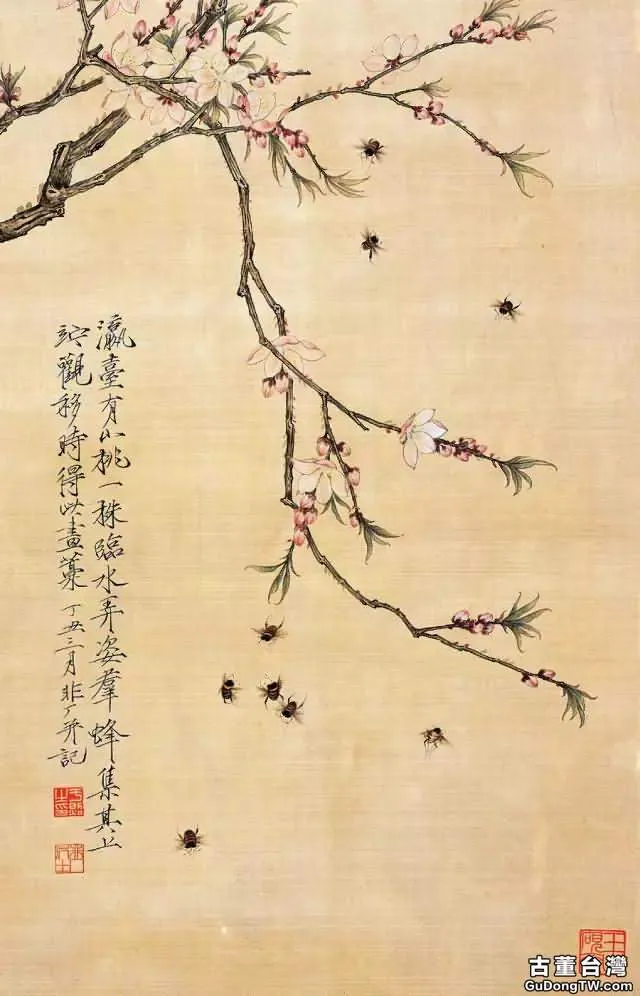 瀛臺有小桃一株臨水弄姿羣蜂集其上
竚觀移時得此畫藁 丁丑三月非厂并記
于照之印
古董台灣
GuDongTW.com